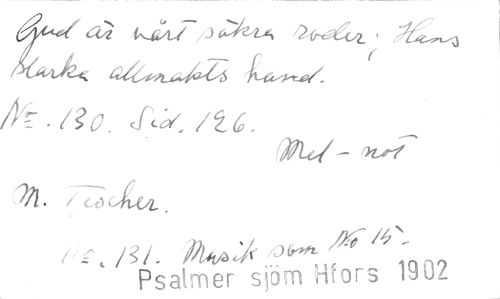 Gud är vårt säkra roder; Hans
starka allmakts hand.
No. 130. Sid. 126.
Mel-not
M. Tischer.
No. 131. Musik som No 15.
Psalmer sjöm Hfors 1902